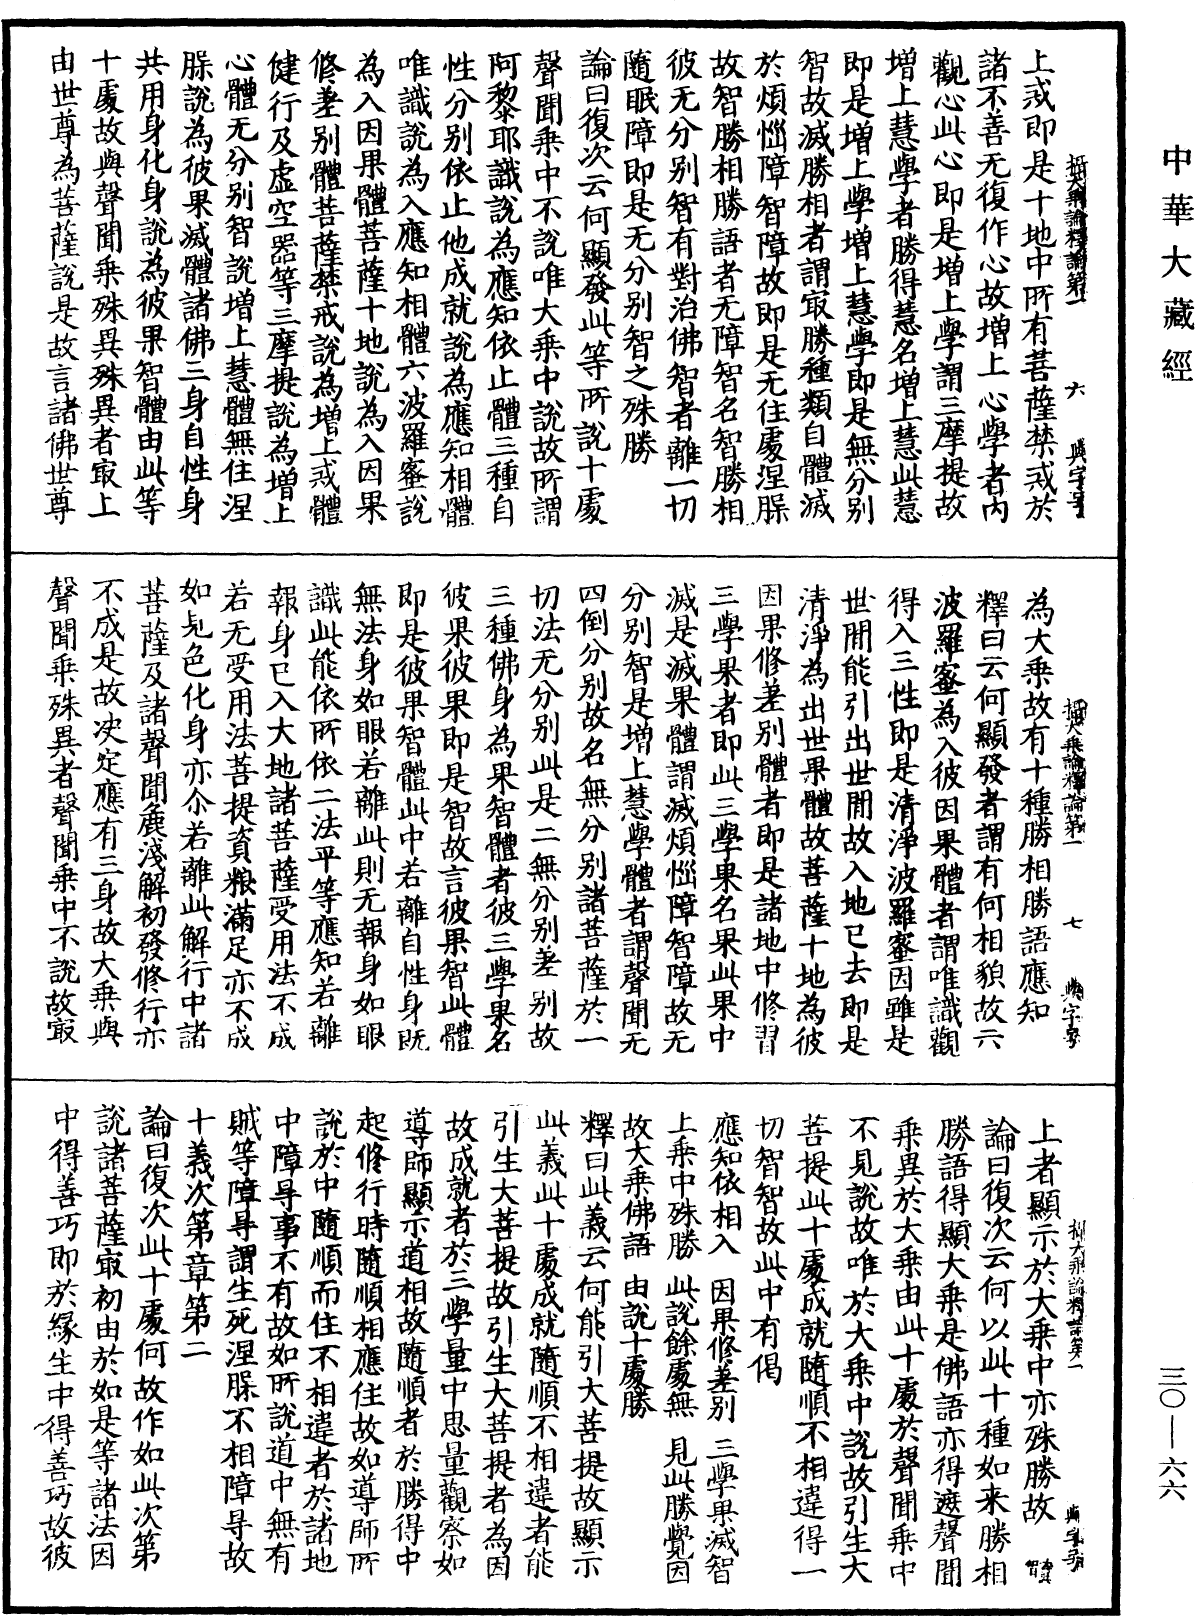 中華大藏經
攝大乘論釋論第一　六　典字号
上戒即是十地中所有菩薩禁戒於
諸不善无復作心故增上心學者內
觀心此心即是增上學謂三摩提故
增上慧學者勝得慧名增上慧此慧
即是增上學增上慧學即是無分別
智故滅勝相者謂㝡勝種類自體滅
於煩惱障智障故即是无住處涅脲
故智勝相勝語者无障智名智勝相
彼无分別智有對治佛智者離一切
隨眠障即是无分別智之殊勝
論曰復次云何顯發此等所說十處
聲聞乘中不說唯大乘中說故所謂
阿黎耶識說為應知依止體三種自
性分別依止他成就說為應知相體
唯識說為入應知相體六波羅蜜說
為入因果體菩薩十地說為入因果
修差別體菩薩禁戒說為增上戒體
健行及虛空器等三摩提說為增上
心體无分別智說增上慧體無住涅
脲說為彼果滅體諸佛三身自性身
共用身化身說為彼果智體由此等
十處故與聲聞乘殊異殊異者㝡上
由世尊為菩薩說是故言諸佛世尊
攝大乘論釋論第一　七　典字号
為大乘故有十種勝相勝語應知
釋曰云何顯發者謂有何相貌故六
波羅蜜為入彼因果體者謂唯識觀
得入三性即是清淨波羅蜜因雖是
世間能引出世間故入地已去即是
清淨為出世果體故菩薩十地為彼
因果修差別體者即是諸地中修習
三學果者即此三學果名果此果中
滅是滅果體謂滅煩惱障智障故无
分別智是增上慧學體者謂聲聞无
四倒分別故名無分別諸菩薩於一
切法无分別此是二無分別差別故
三種佛身為果智體者彼三學果名
彼果彼果即是智故言彼果智此體
即是彼果智體此中若離自性身既
無法身如眼若離此則无報身如眼
識此能依所依二法平等應知若離
報身已入大地諸菩薩受用法不成
若无受用法菩提資粮滿足亦不成
如見色化身亦尒若離此解行中諸
菩薩及諸聲聞麁淺解初發修行亦
不成是故决定應有三身故大乘與
聲聞乘殊異者聲聞乘中不說故㝡
攝大乘論釋論第一　典字号
上者顯示於大乘中亦殊勝故
論曰復次云何以此十種如来勝相
勝語得顯大乘是佛語亦得遮聲聞
乘異於大乘由此十處於聲聞乘中
不見說故唯於大乘中說故引生大
菩提此十處成就隨順不相違得一
切智智故此中有偈
應知依相入　因果修差別　三學果滅智
上乘中殊勝　此說餘處無　見此勝覺因
故大乘佛語　由說十處勝
釋曰此義云何能引大菩提故顯示
此義此十處成就隨順不相違者能
引生大菩提故引生大菩提者為因
故成就者於三學量中思量觀察如
導師顯示道相故隨順者於勝得中
起修行時隨順相應住故如導師所
說於中隨順而住不相違者於諸地
中障㝵事不有故如所說道中無有
賊等障㝵謂生死涅脲不相障㝵故
十義次第章第二
論曰復次此十處何故作如此次第
說諸菩薩㝡初由於如是等諸法因
中得善巧即於緣生中得善巧故彼
三〇—六六